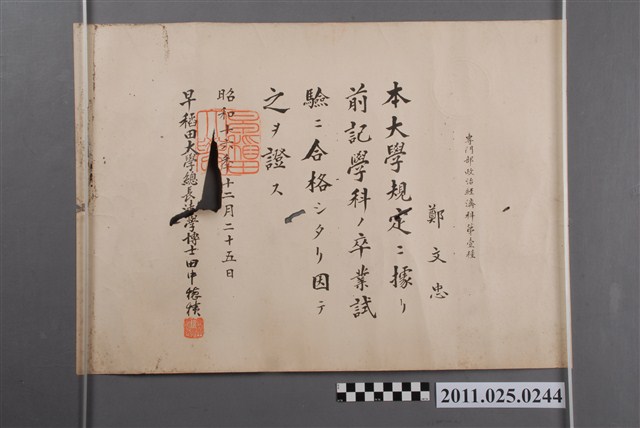 專門部政治經濟科第壹種
鄭文忠
本大學規定ニ據リ
前記學科ノ卒業試
驗ニ合格シタリ因テ
之ヲ證ス
昭和十六年十二月二十五日
早稻田大學總長法學博士田中穗積
2011.025.0244